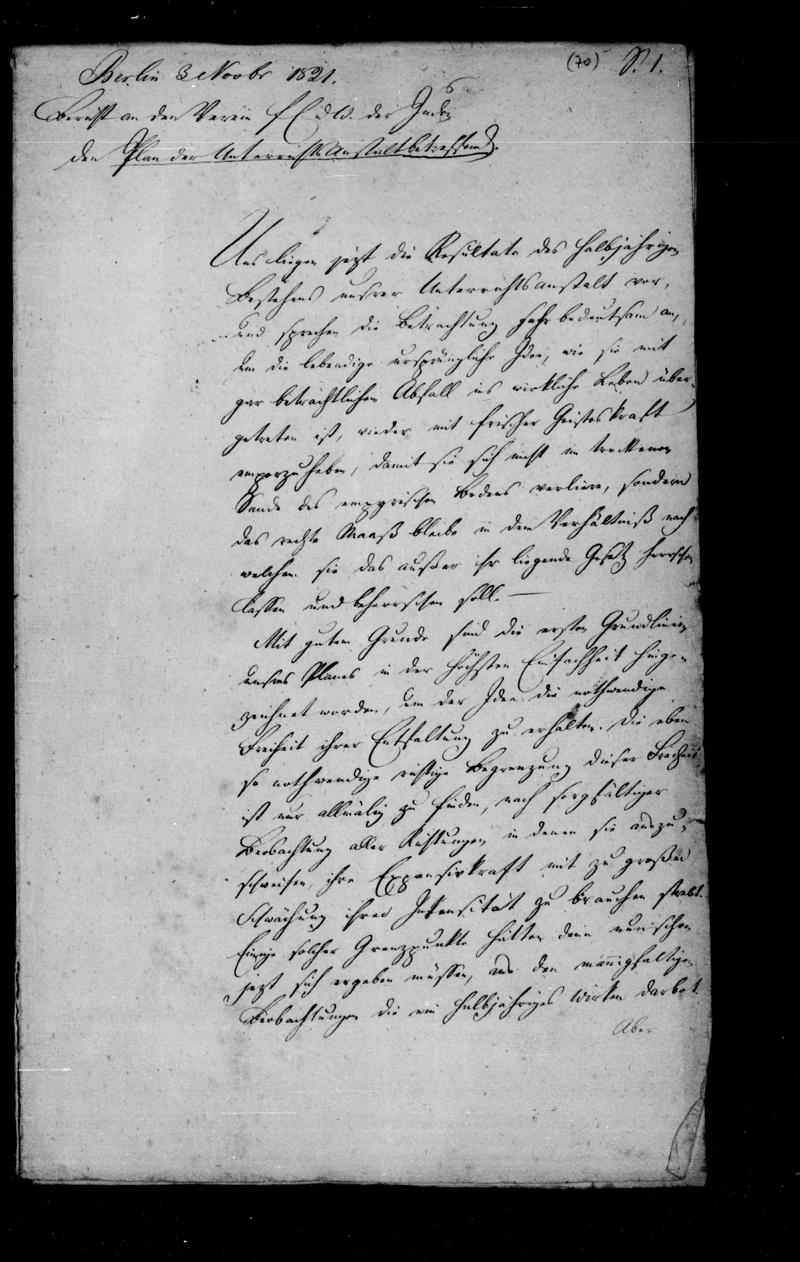 (70) S. 1.
Berlin 3 Novbr 1821.
Bericht an den Verein f C u W. der Juden
den Plan der Unterrichtsanstalt betreffend.
Uns liegen jetzt die Resultate des halbjährigen
Bestehens unsrer Unterrichtsanstalt vor,
und sprechen die Betrachtung sehr bedeutsam an,
um die lebendige ursprüngliche Idee, wie sie mit
gar beträchtlichem Abfall ins wirkliche Leben über-
getreten ist, wieder mit frischer Geisteskraft
emporzuheben, damit sie sich nicht im trockenen
Sande des empyrischen Bodens verliere, sondern
das rechte Maaß bleibe in dem Verhältniß nach
welchem sie das außer ihr liegende Gesetz herrschen
lassen und beherrschen soll. —
Mit gutem Grunde sind die ersten Grundlinien
unsres Planes in der höchsten Einfachheit hinge-
zeichnet worden, um der Idee die nothwendige
Freiheit ihrer Entfaltung zu erhalten. Die eben
so nothwendige richtige Begrenzung dieser Freiheit
ist nur allmälig zu finden, nach sorgfältiger
Beobachtung aller Richtungen in denen sie auszu-
schweifen, ihre Expansivkraft mit zu großer
Schwächung ihrer Intensität zu brauchen strebt.
Einige solcher Grenzpunkte hätten denn
jetzt sich ergeben müssen, aus den mannigfaltigen
Beobachtungen die ein halbjähriges Wirken darbot.
Aber